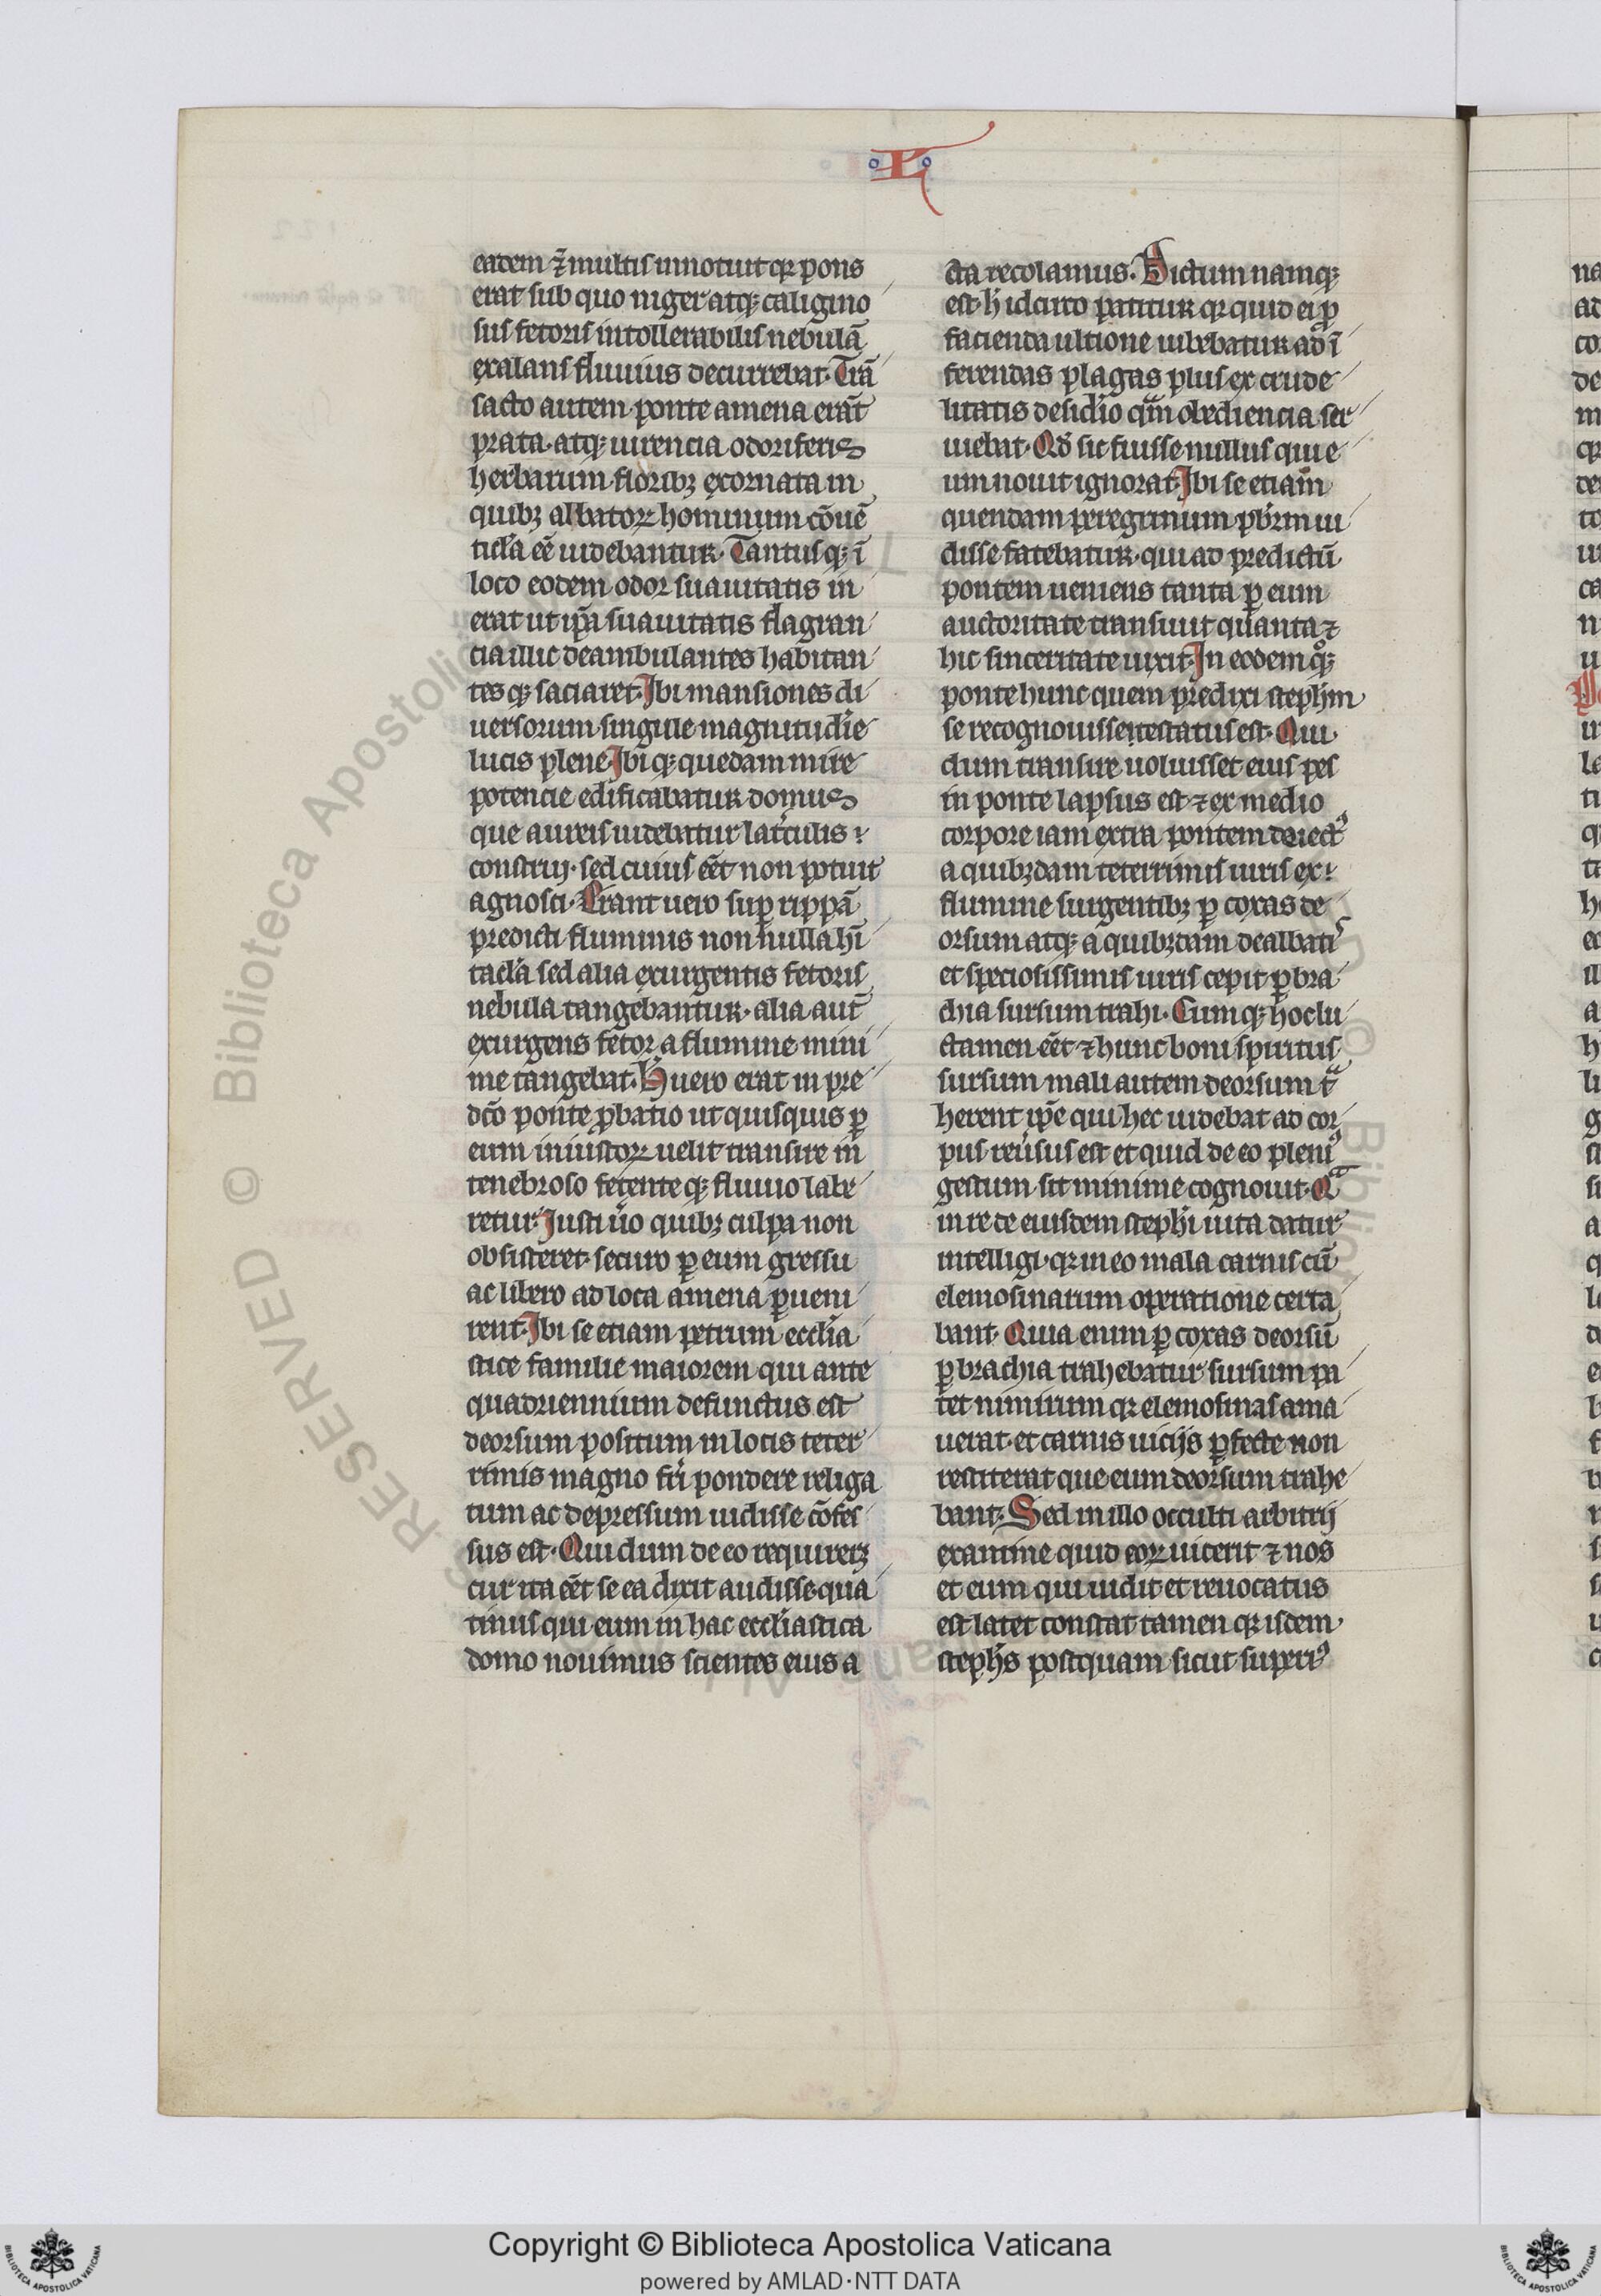 L
eadem ⁊ multis innotuit qꝛ pons
erat sub quo niger atqꝫ caligino
sus fetoris intollerabilis nebulā
exalans fluuius decurrebat. Trā
sacto autem ponte amena erāt
prata. atqꝫ uirencia odoriferis
herbarum floribꝫ exornata in
quibꝫ albatoꝝ hominum cōuē
ticl̄a eē uidebantur. Tantusqꝫ ī
loco eodem odor suauitatis in
erat ut ip̄a suauitatis flagran
cia illic deambulantes habitan
tesqꝫ saciaret. Ibi mansiones di
uersorum singule magnitudīe
lucis plene. Ibiqꝫ quedam mire
potencie edificabatur domus
que aureis uidebatur lat̄culis
construi. sed cuius eēt non potuit
agnosci. Erant uero suꝑ rippā
predicti fluminis non nulla hī
tacl̄a sed alia exurgentis fetoris
nebula tangebantur. alia aut̄
exurgens fetor a flumine mini
me tangebat. H̄ uero erat in pre
dc̄o ponte ꝓbatio ut quisquis ꝑ
eum iniustoꝝ uelit transire in
tenebroso fetenteqꝫ fluuio labe
retur. Iusti ūo quibꝫ culpa non
obsisteret. securo ꝑ eum gressu
ac libero ad loca amena ꝑueni
rent. Ibi se etiam petrum eccl̄ia
stice familie maiorem qui ante
quadriennium defunctus est
deorsum positum in locis teter
rimis magno fr̄i pondere religa
tum ac depressum uidisse cōfes
sus est. Qui dum de eo requireꝫ
cur ita eēt se ea dixit audisse qua
tinus qui eum in hac eccl̄iastica
domo nouimus scientes eius a
cta recolamus. Dictum namqꝫ
est. h̄ idcirco patitur qꝛ quid ei ꝓ
facienda ultione iubebatur ad ī
ferendas plagas plus ex crude
litatis desidīo qm̄ obediencia ser
uiebat. Qd̄ sic fuisse nullus qui e
um nouit ignorat. Ibi se etiam
quendam peregrinum pb̄rm ui
disse fatebatur. qui ad predictū
pontem ueniens tanta ꝑ eum
auctoritate transiuit quanta ⁊
hic sinceritate uixit. In eodem qͦꝫ
ponte hunc quem predixi steph̄m
se recognouisse testatus est. Qui
dum transire uoluisset eius pes
in ponte lapsus est ⁊ ex medio
corpore iam extra pontem deiectꝰ
a quibꝫdam teterrimis uiris ex
flumine surgentibꝫ ꝑ coxas de
orsum atqꝫ a quibꝫdam dealbatis
et speciosissimis uiris cepit ꝑ bra
chia sursum trahi. Cumqꝫ hoc lu
ctamen eēt ⁊ hunc boni spiritus
sursum mali autem deorsum tᵃ
herent ip̄e qui hec uidebat ad cor
pus reūsus est et quid de eo pleniꝰ
gestum sit minime cognouit. Qᵃ
in re de eiusdem steph̄i uita datur
intelligi. qꝛ in eo mala carnis cū
elemosinarum operatione certa
bant. Quia enim ꝑ coxas deorsū
ꝑ brachia trahebatur sursum pa
tet nimirum qꝛ elemosinas ama
uerat. et carnis uicijs ꝑfecte non
restiterat que eum deorsum trahe
bant. Sed in illo occulti arbitrij
examine quid eoꝝ uicerit ⁊ nos
et eum qui uidit et reuocatus
est latet. constat tamen qꝛ isdem
steph̄s postquam sicut superiꝰ
Copyright © Biblioteca Apostolica Vaticana
powered by AMLAD·NTT DATA